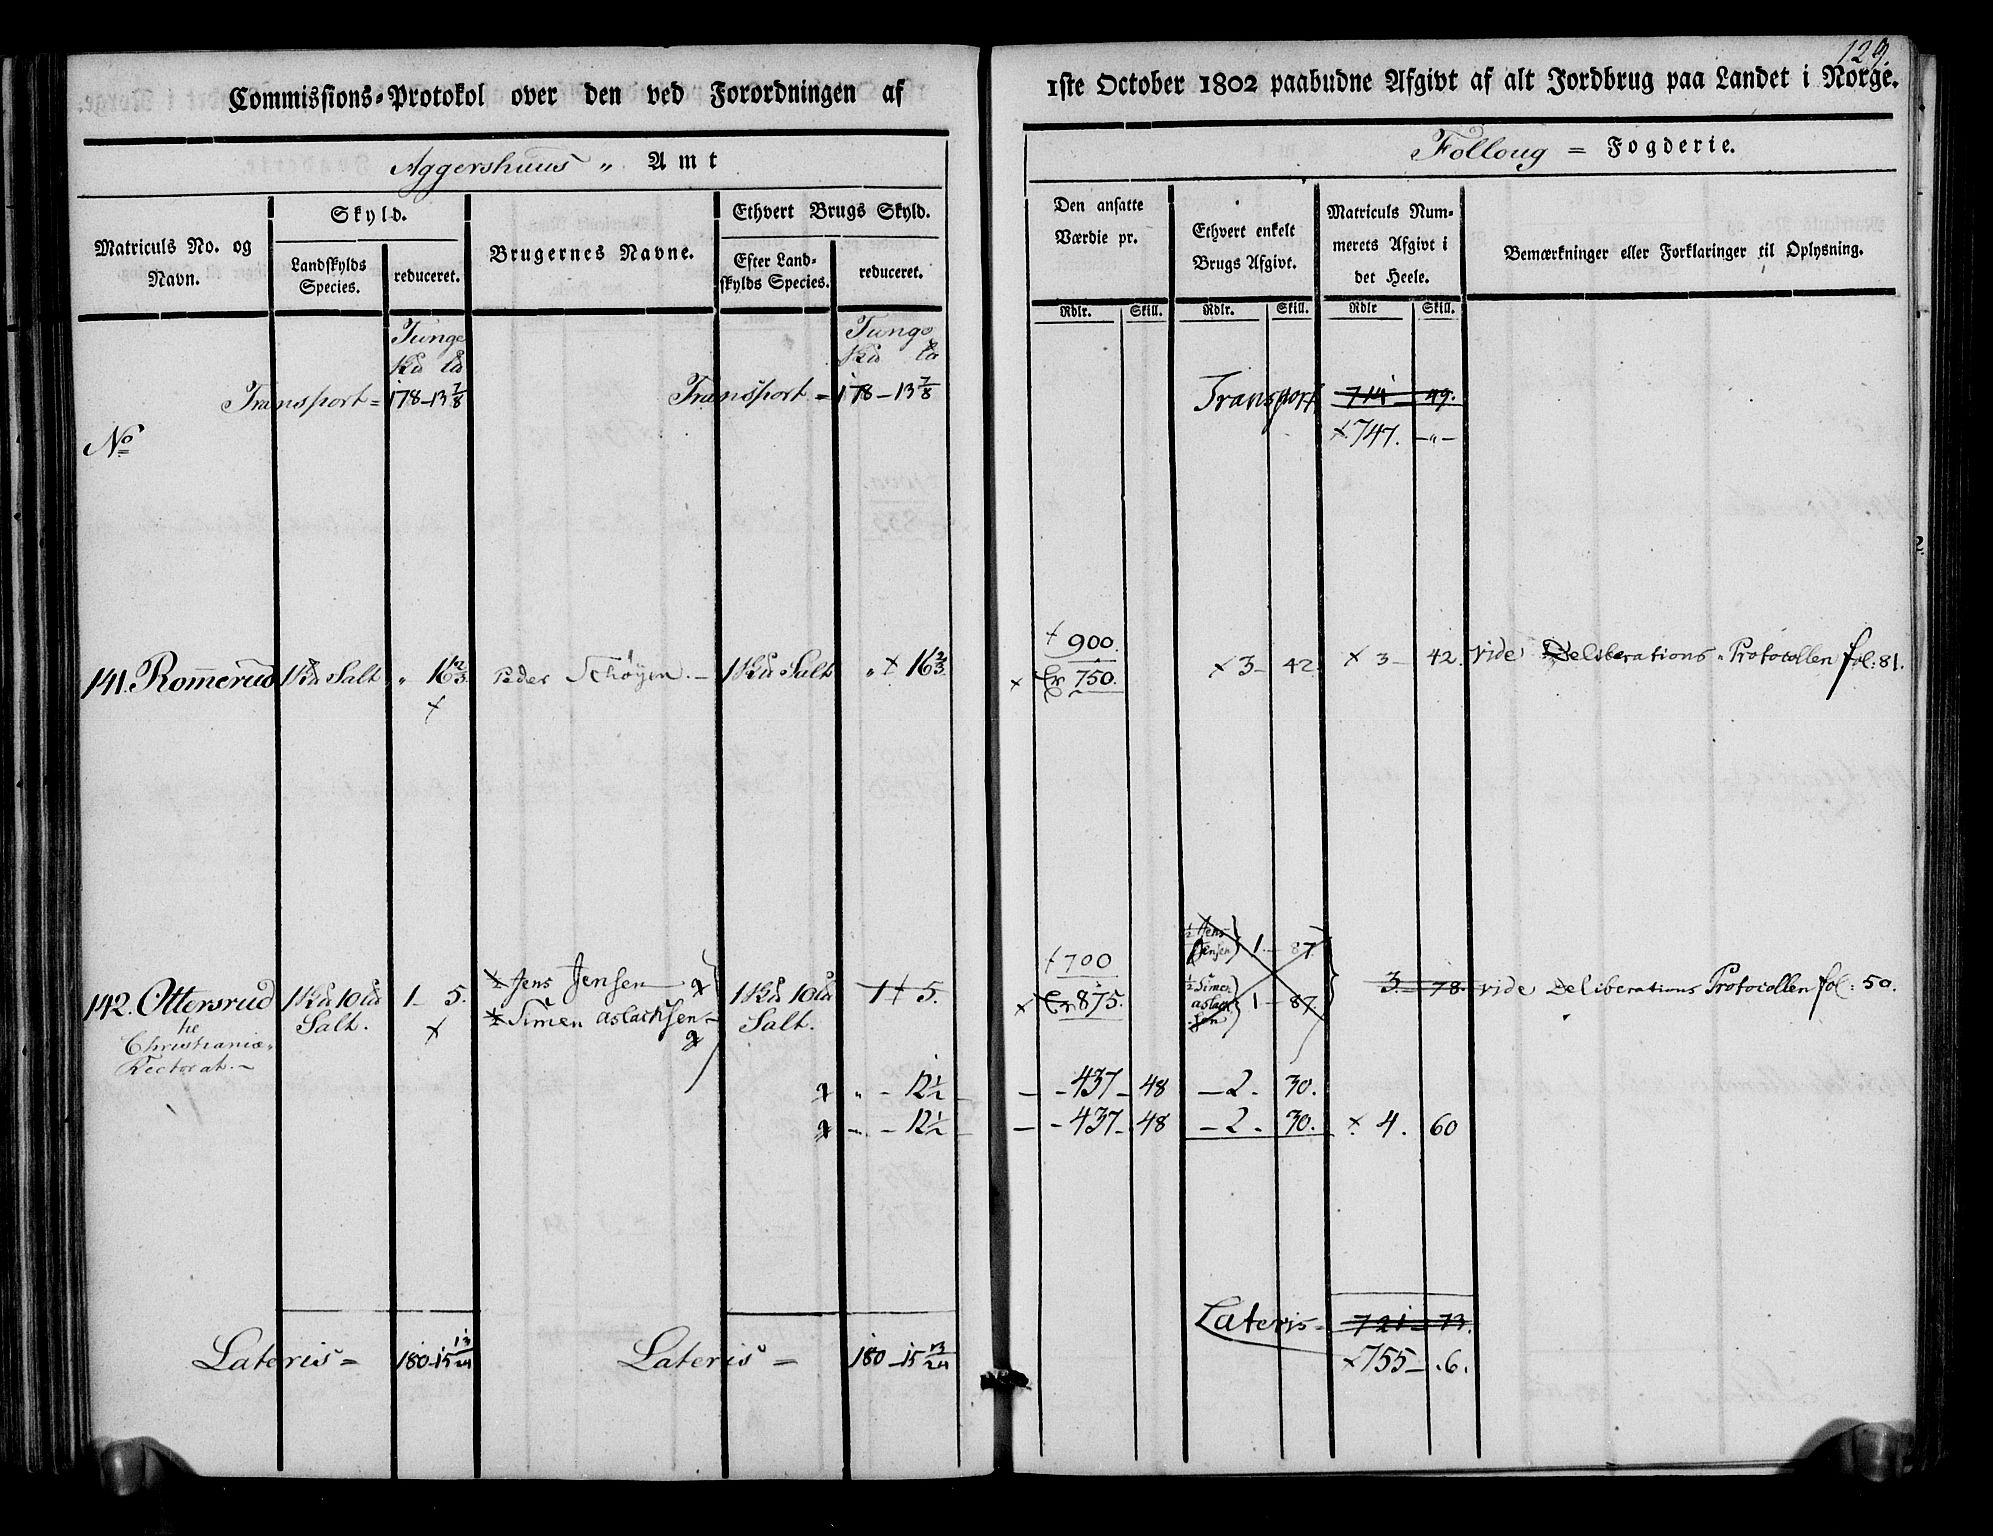 129.
Commissions-Protokol over den ved Forordningen af 1ste October 1802 paabudne Afgivt af alt Jordbrug paa Landet i Norge.
Aggershuus „ Amt
Folloug = Fogderie.
Matriculs No. og Navn.
Skyld.
Landskylds Species.
reduceret.
Brugernes Navne.
Ethvert Brugs Skyld.
Efter Landskylds Species.
reduceret.
Den ansatte Værdie pr.
Rdlr. Skill.
Ethvert enkelt Brugs Afgivt.
Rdlr. Skill.
Matriculs Nummerets Afgivt i det Heele.
Rdlr Skill.
Bemærkninger eller Forklaringer til Oplysning.
Tunge Tunge
Transport = 178 - 13 7/8 Transport = 178 - 13 7/8 Transport 714 49.
x 747. - „ -
No
† 900.
141. Romerud 1 Salt „ 16 2/3 Peder Schöyen. - 1 Salt „ x 16 2/3 x Er 750. x 3 - 42. x 3 - 42. vide Deliberations-Protocollen fol: 81.
x
1/2 Jens Jensen 1 - 87.
† 700
142. Ottersrud 1 10 Salt. 1 - 5. 1/2 Jens Jensen 1 10 Salt. 1 † 5. x Er 875. 1/2 Simen Aslachsen 1 - 87. 3 - 78. vide Deliberations Protocollen fol: 50.
x 1/2 Simen Aslachsen
Christianiæ
Rectorat. -
„ - 12 1/2 - 437 - 48 - 2 - 30.
- 12 1/2 - 437 - 48 - 2 - 30. x 4. 60
Lateris = 180 - 15 13/24 Lateris = 180 - 15 13/24 Lateris = 721 - 73.
x 755 - 6.